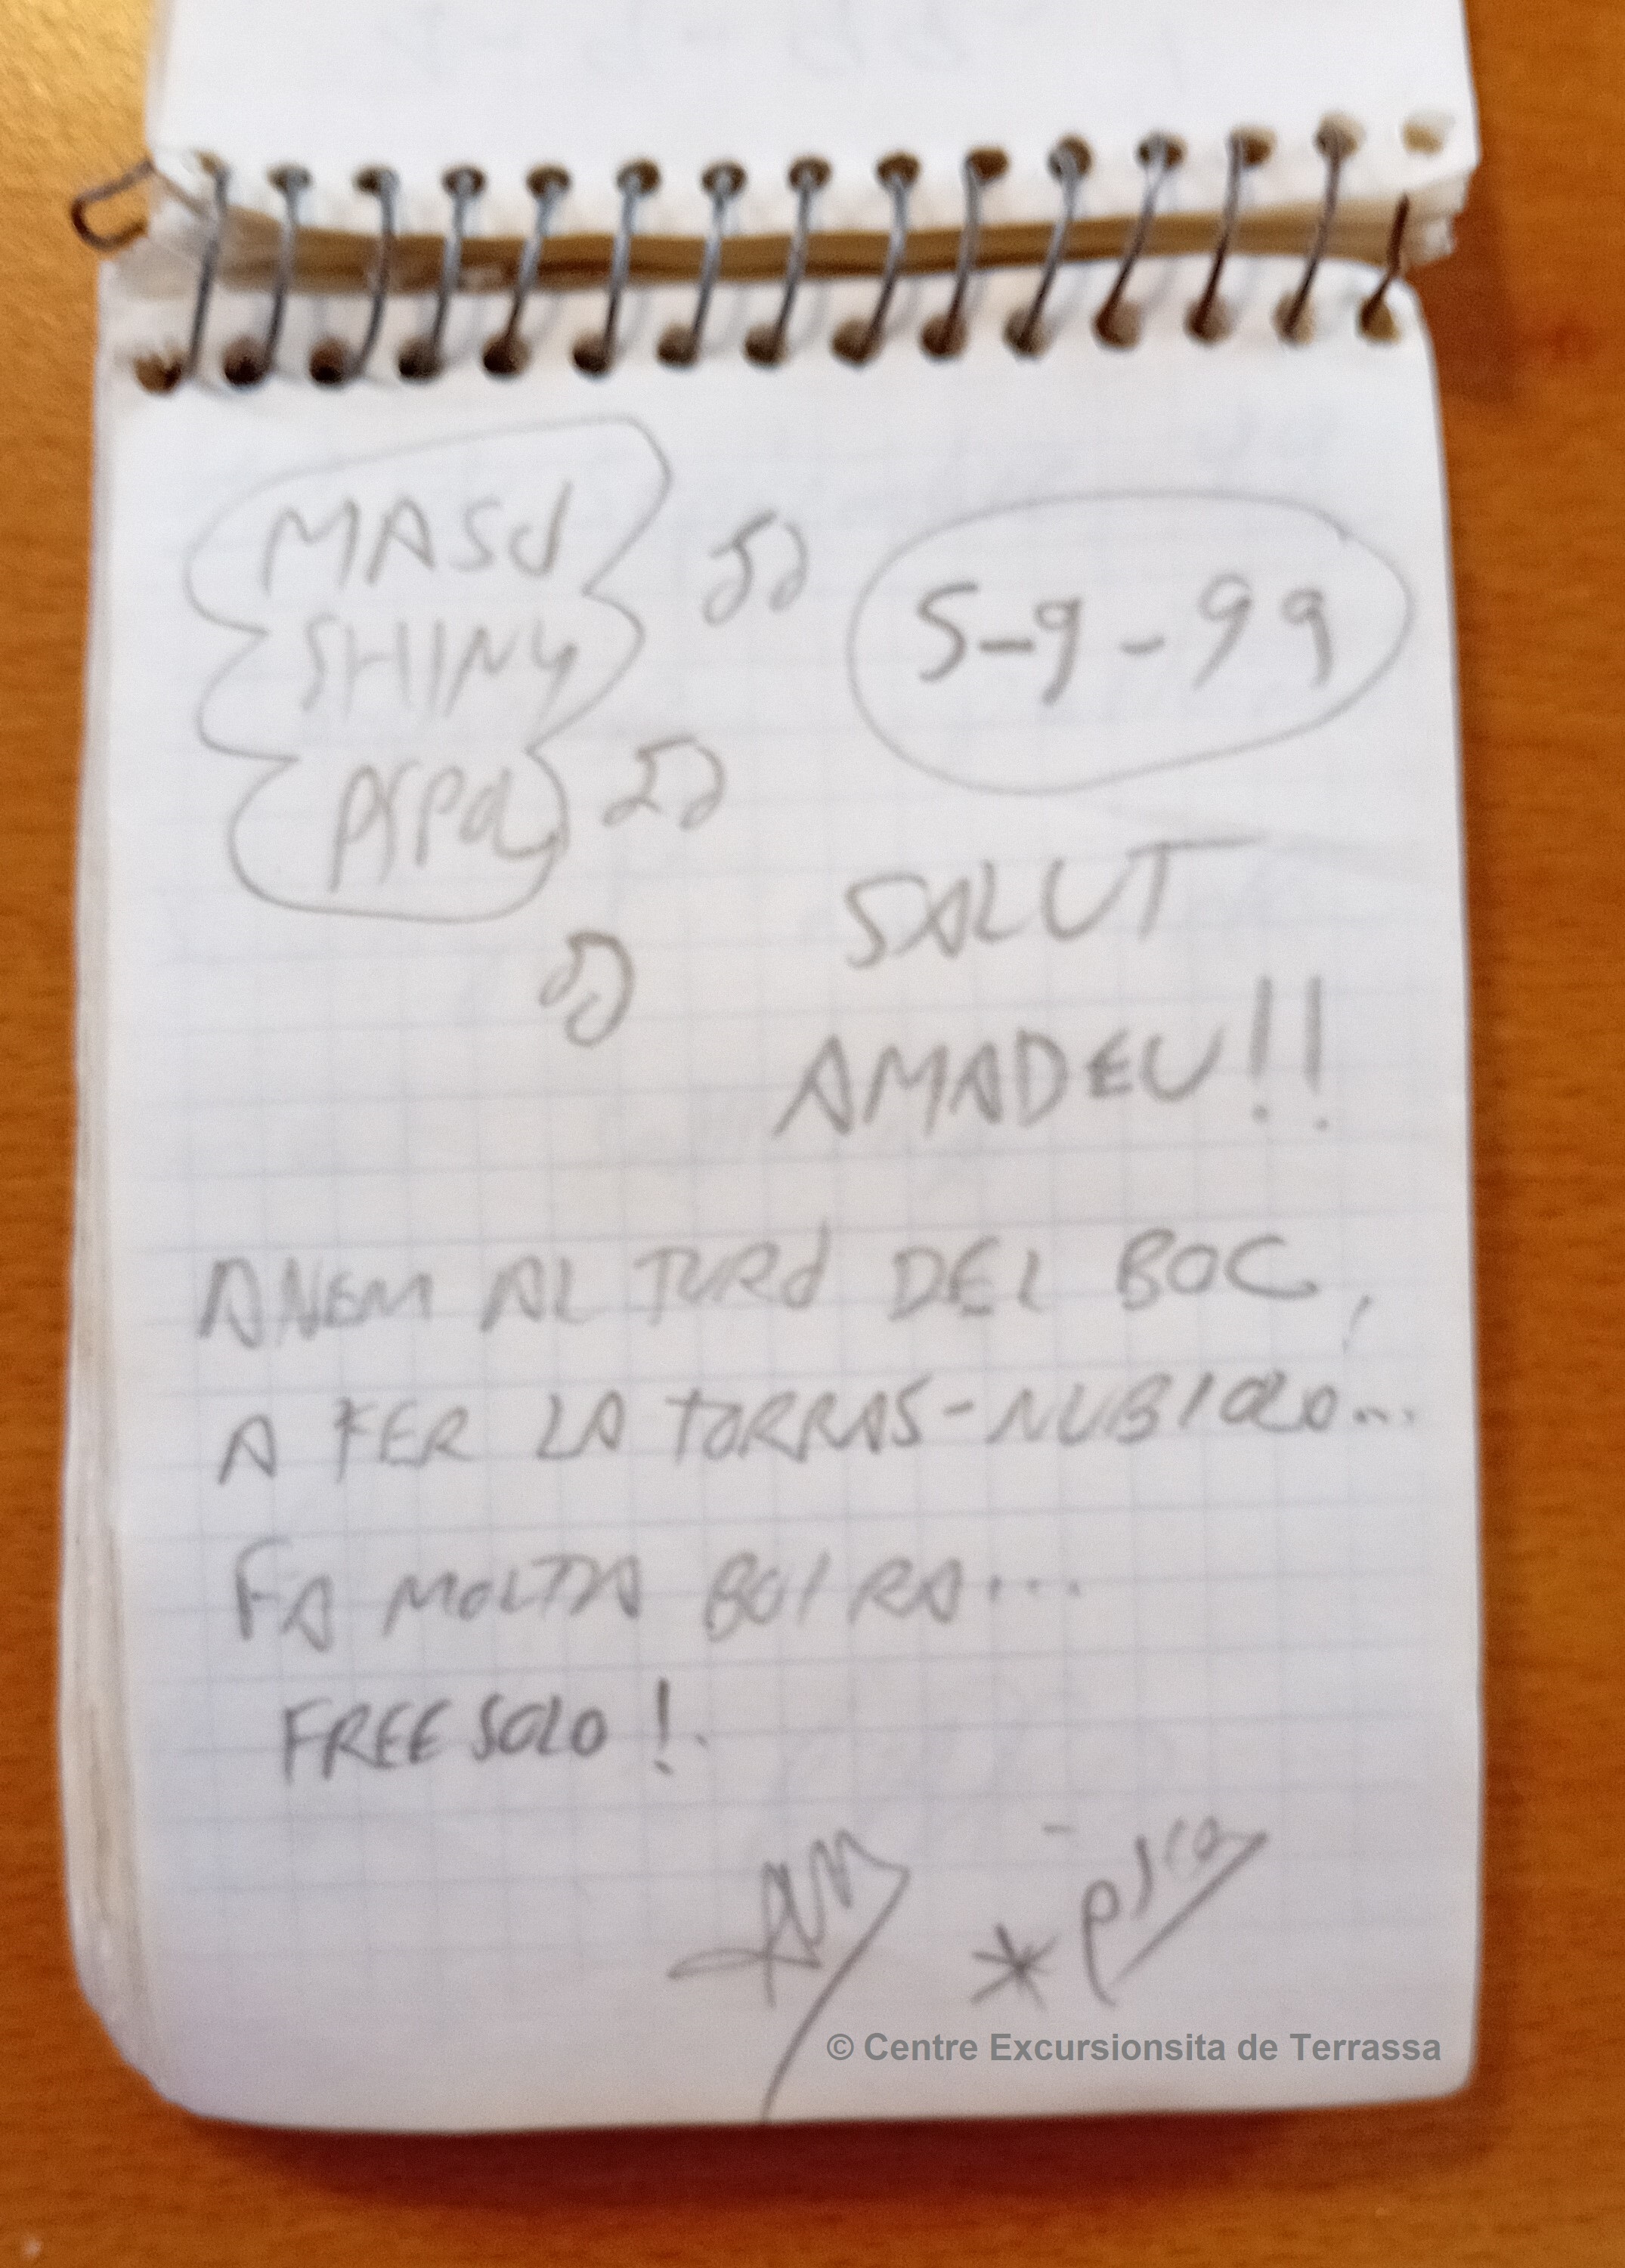 MASÓ
SHINY
5-9-99
SALUT
AMADEU!!
ANEM AL TURÓ DEL BOC,
A FER LA TORRAS-NUBIOLO...
FA MOLTA BOIRA...
FREE SOLO!
© Centre Excursionsita de Terrassa